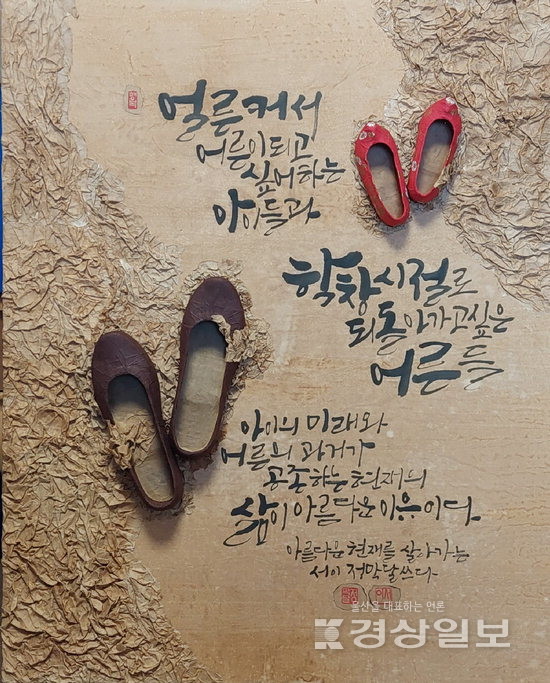 얼른 커서
어른이 되고
싶어하는
아이들과
학창시절로
되돌아가고싶은
어른들
아이의 미래와
어른의 과거가
공존하는 현재의
삶이 아름다운 이유이다.
아름다운 현재를 살아가는
서이 저막달쓰다
울산을 대표하는 언론
경상일보